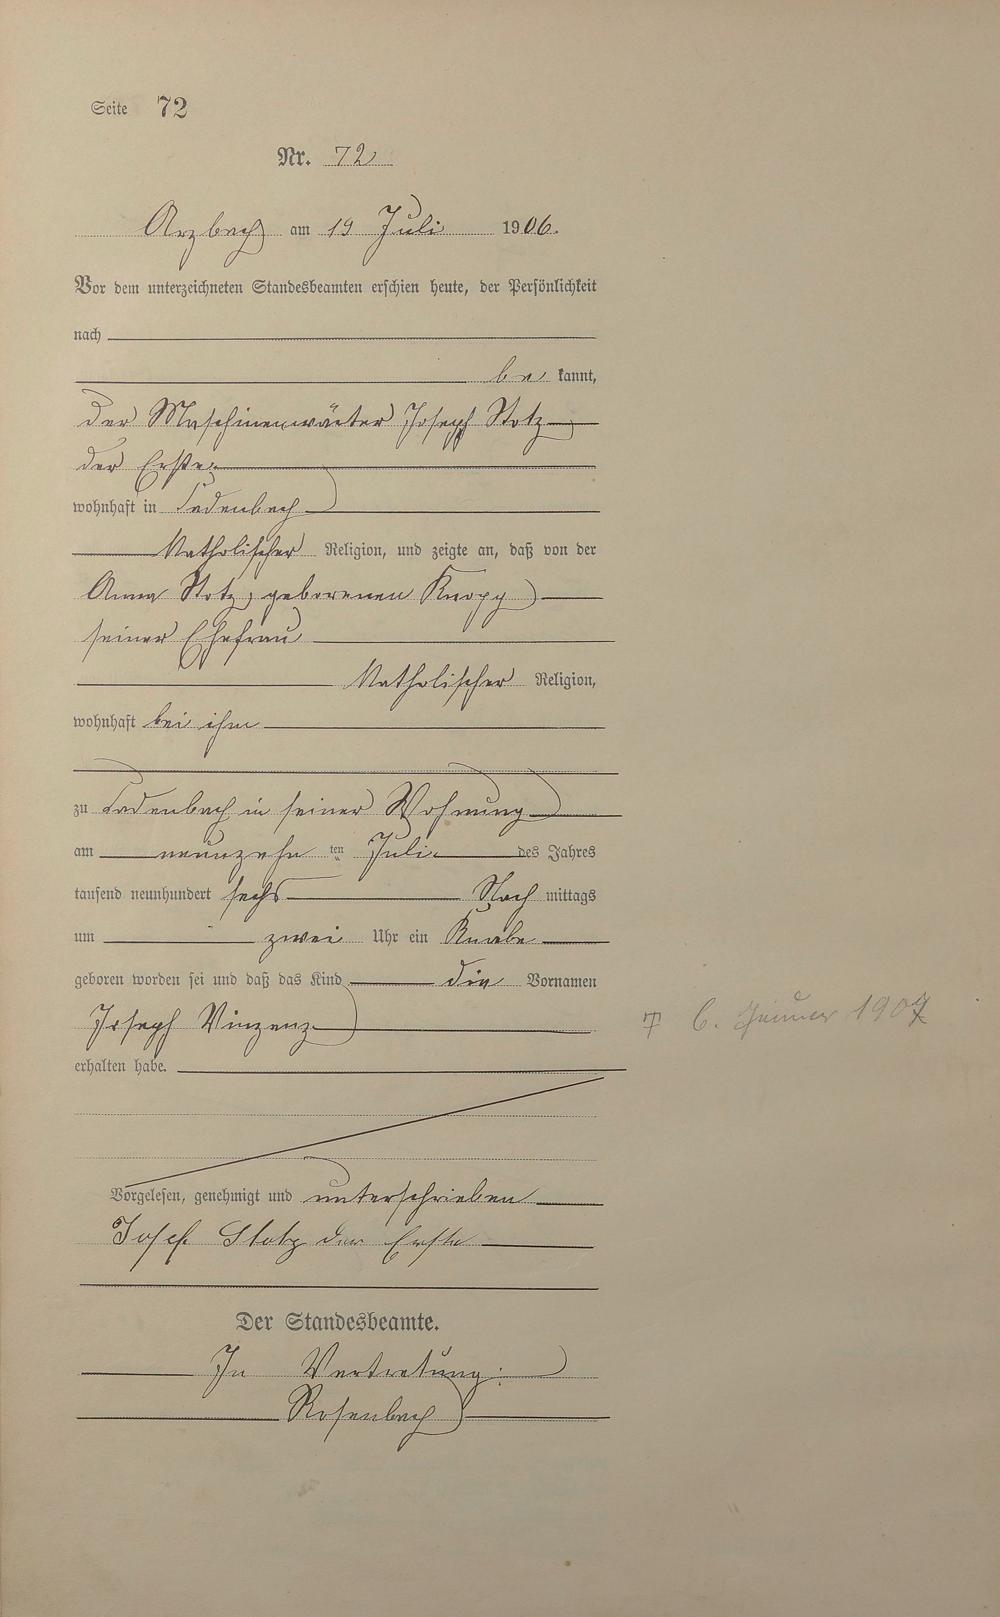 Seite 72
Nr. 72
Arzbach am 19 Juli 1906.
Vor dem unterzeichneten Standesbeamten erschien heute, der Persönlichkeit
nach
be kannt,
der Maschinenwärter Joseph Stotz
der Erste,
wohnhaft in Cadenbach
Katholischer Religion, und zeigte an, daß von der
Anna Stotz, geborenen Knopp
seiner Ehefrau
Katholischer Religion,
wohnhaft bei ihm
zu Cadenbach in seiner Wohnung
am neunzehn ten Juli des Jahres
tausend neunhundert sechs Nach mittags
um zwei Uhr ein Knabe
geboren worden sei und daß das Kind die Vornamen
Joseph Vinzenz
† 6. Januar 1907
erhalten habe.
Vorgelesen, genehmigt und unterschrieben
Josef Stotz der Erste
Der Standesbeamte.
In Vertretung:
Rosenbach